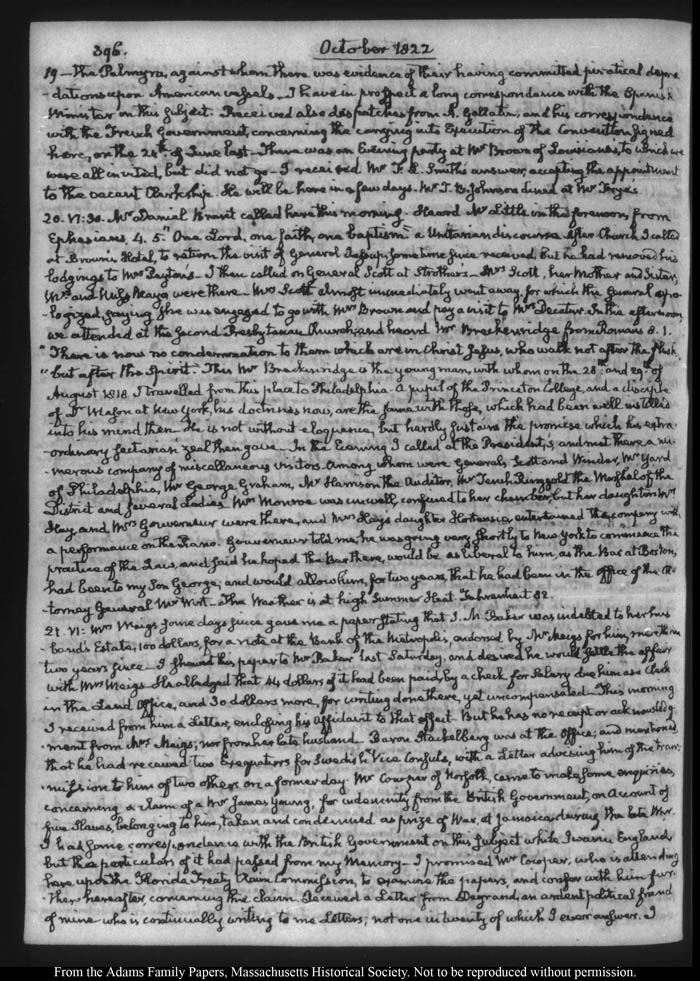 396.
October 1822
19 — The Palmyra, against whom there was evidence of their having committed piratical depre
-dations upon American vessels. I have in prospect a long correspondence with the Spanish
Minister on this subject. Received also despatches from A. Gallatin, and his correspondence
with the French Government, concerning the carrying into Execution of the Convention signed
here, on the 24th. of June last. There was an Evening party at Mr Brown of Louisiana's, to which we
were all invited, but did not go. I received Mr T. L. Smith's answer, accepting the appointment
to the vacant Clerkship. He will be here in a few days. Mr T. B. Johnson dined at Mr Frye's.
20. VI:30. Mr Daniel Brent called here this morning. Heard Mr Little in the forenoon, from
Ephesians, 4. 5. "One Lord, one faith, one baptism" a Unitarian discourse. After Church I called
at Brown's Hotel, to return the visit of General Jessup, some time since received, but he had removed his
lodgings to Mrs Peyton's. I then called on General Scott at Strother's. Mrs Scott, her Mother and Sister,
Mrs and Miss Mayo were there. Mrs Scott almost immediately went away, for which the General apo-
-logized, saying she was engaged to go with Mrs Brown and pay a visit to Mrs Decatur. In the afternoon,
we attended at the second Presbyterian Church, and heard Mr Breckenridge from Romans 8. 1.
"There is now no condemnation to them which are in Christ Jesus, who walk not after the flesh,
"but after the Spirit." This Mr Breckenridge is the young man, with whom on the 28th. and 29th. of
August 1818. I travelled from this place to Philadelphia. A pupil of the Princeton College, and a disciple
of Dr Mason at New York, his doctrines now, are the same with those, which had been well instilled
into his mind then. He is not without eloquence, but hardly sustains the promise which his extra-
-ordinary sectarian zeal then gave. In the Evening I called at the President's, and met there a nu-
-merous company of miscellaneous visitors among whom were Generals Scott and Winder, Mr Yard
of Philadelphia, Mr George Graham, Mr Harrison the Auditor, Mr Tench Ringgold the Marshal of the
District and several Ladies. Mrs Monroe was unwell, confined to her chamber, but her daughters Mrs
Hay, and Mrs Gouverneur were there, and Mrs Hay's daughter Hortensia, entertained the company with
a performance on the Piano. Gouverneur told me, he was going very shortly to New York to commence the
practice of the Law, and said he hoped the Bar there, would be as liberal to him, as the Bar at Boston,
had been to my Son George; and would allow him, for two years, that he had been in the office of the At-
torney General Mr Wirt. The Weather is at high Summer Heat. Fahrenheit 82.
21. VI: Mrs Meigs some days since gave me a paper stating that J. M. Baker was indebted to her hus-
band's Estate, 100 dollars, for a note at the Bank of the Metropolis, endorsed by Mr Meigs for him, more than
two years since. I showed this paper to Mr Baker last Saturday, and desired he would settle the affair
with Mrs Meigs. He alledged that 44 dollars of it had been paid, by a check for Salary due him as a Clerk
in the Land Office, and 30 dollars more, for writing done there, yet uncompensated. This morning
I received from him a Letter, enclosing his Affidavit to that effect. But he has no receipt or acknowledg-
-ment from Mrs Meigs, nor from her late husband. Baron Stackelberg was at the Office; and mentioned
that he had received two Exequaturs for Swedish Vice Consuls, with a Letter advising him of the trans-
mission to him of two others on a former day. Mr Cowper of Norfolk, came to make some enquiries,
concerning a claim of a Mr James Young, for indemnity from the British Government, on account of
five Slaves, belonging to him, taken and condemned as prize of War, at Jamaica, during the late War.
I had some correspondence with the British Government on this subject while I was in England
but the particulars of it had passed from my Memory. I promised Mr Cowper, who is attending
here upon the Florida Treaty Claim Commission, to examine the papers, and confer with him fur-
-ther hereafter, concerning the claim. Received a Letter from Degrand, an ardent political friend
of mine who is continually writing to me Letters, not one in twenty of which I ever answer. I
From the Adams Family Papers, Massachusetts Historical Society. Not to be reproduced without permission.